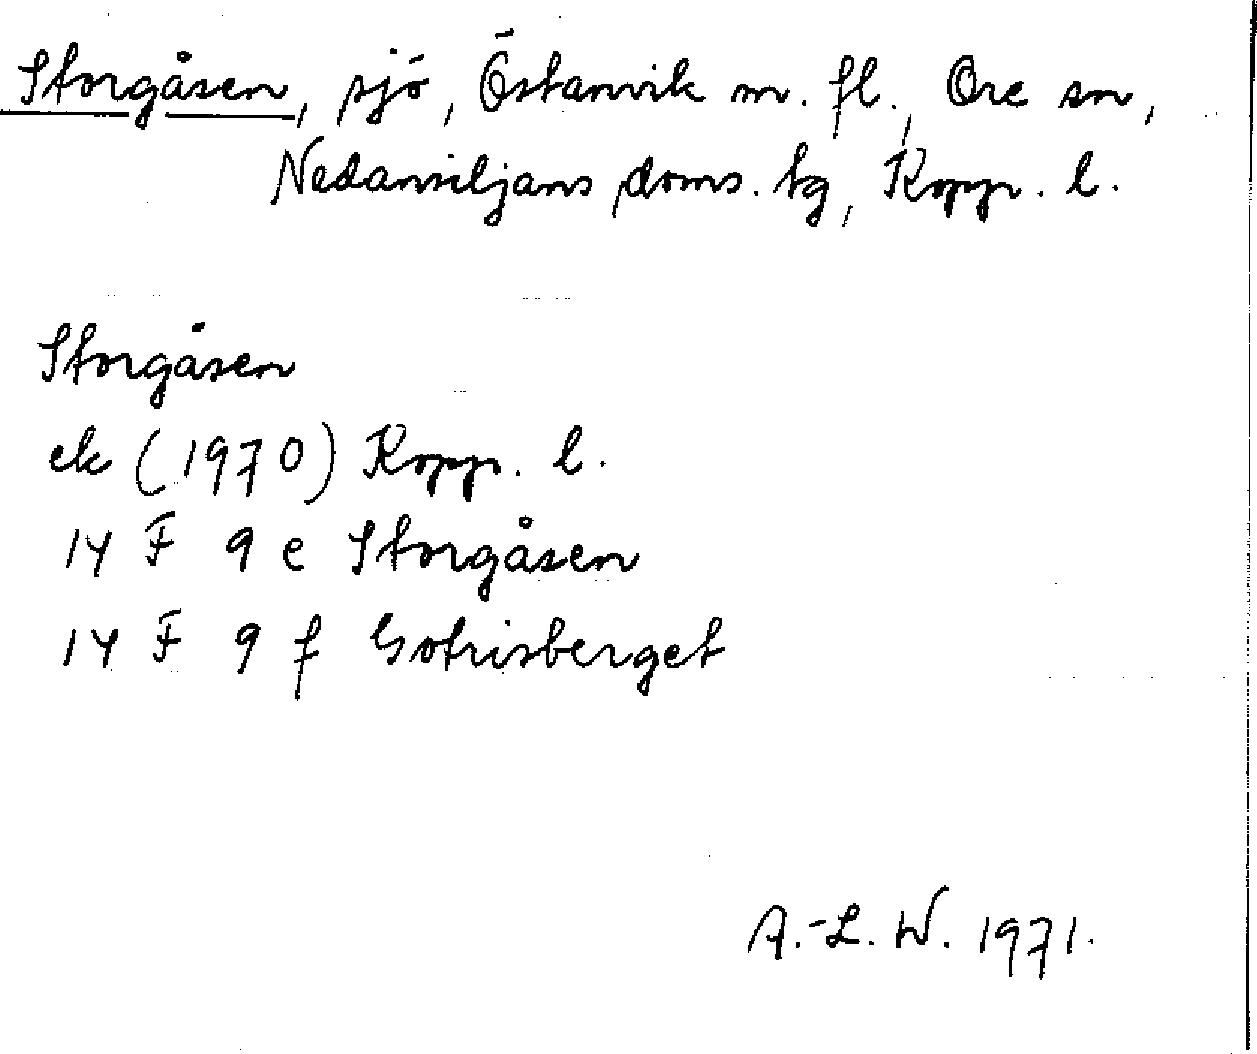 Storgåsen, sjö, Östanvik m. fl., Ore sn,
Nedansiljans doms. tg, Kopp. l.
Storgåsen
ek (1970) Kopp. l.
14 F 9 e Storgåsen
14 F 9 f Gotrisberget
A.-L. W. 1971.